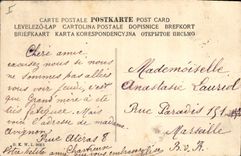 CARTE POSTALE POSTKARTE POST CARD
LEVELEZŐ-LAP CARTOLINA POSTALE DOPISNICE BREFKORT
BRIEFKAART KARTA KORESPONDENCYJNA ОТКРЫТОЕ ПИСЬМО
Chère amie
excusez nous si nous
ne sommes pas allés
vous voir jeudi, c'est
que Grand mère a été
fatiguée. Mais voici
l'adresse de madame
Avignon
Rue
Mademoiselle
Anastasie
Rue Paradis 151
Marseille
B. d. R.